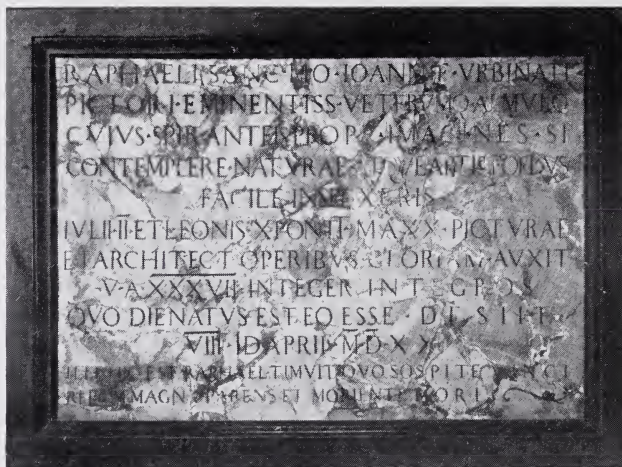 RAPHAELI·SANCTIO·IOANN·F·VRBINATI
PICTORI·EMINENTISS·VETERVMQ·AEMVLO
CVIVS·SPIRANTEIS·PROPE·IMAGINES·SI
CONTEMPLERE·NATVRAE
FACILE·INSPEXERIS
IVLII·II·ET·LEONIS·X·PONTT·MAXX·PICTVRAE
ET·ARCHITECT·OPERIBVS·GLORIAM·AVXIT
V·A·XXXVII·INTEGER·INTEGROS
QVO·DIE·NATVS·EST·EO·ESSE·DESIIT
VIII·ID·APRIL·MDXX
ILLE·HIC·EST·RAPHAEL·TIMVIT·QVO·SOSPITE·VINCI
RERVM·MAGNA·PARENS·ET·MORIENTE·MORI